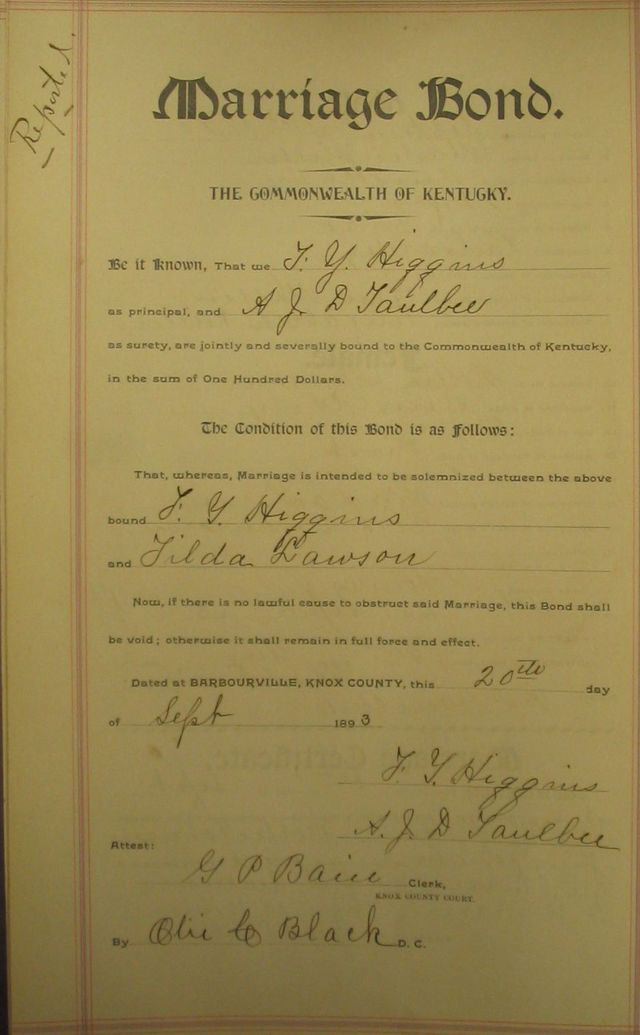 Reported.
Marriage Bond.
THE COMMONWEALTH OF KENTUCKY.
Be it Known, That we F. Y. Higgins
as principal, and A J D Taulbee
as surety, are jointly and severally bound to the Commonwealth of Kentucky,
in the sum of One Hundred Dollars.
The Condition of this Bond is as Follows:
That, whereas, Marriage is intended to be solemnized between the above
bound F. Y. Higgins
and Tilda Lawson
Now, if there is no lawful cause to obstruct said Marriage, this Bond shall
be void; otherwise it shall remain in full force and effect.
Dated at BARBOURVILLE, KNOX COUNTY, this 20th day
of Sept 1893
F. Y. Higgins
A. J. D Taulbee
Attest:
G P Bain Clerk,
KNOX COUNTY COURT.
By Olie C Black D. C.